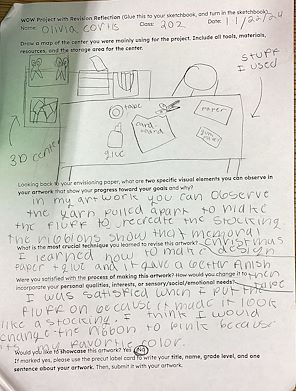 WOW Project with Revision Reflection (Glue this to your sketchbook, and turn in the sketchbook)
Name: Olivia Class: 202 Date: 11/22/24
Draw a map of the center you were mainly using for the project. Include all tools, materials, resources, and the storage area for the center.
stuff
I used
tape
paper
card
board
glue
3D center
Looking back to your envisioning paper, what are two specific visual elements you can observe in your artwork that show your progress toward your goals and why?
In my artwork you can observe
the yarn pulled apart to make
the fluff to recreate the stocking
the ribbons show that memory
What is the most crucial technique you learned to revise this artwork? christmas
I learned how to make design
paper + glue and it gave a better
Were you satisfied with the process of making this artwork? How would you change it to incorporate your personal quantities, interests, or sensory/social/emotional needs?
I was satisfied when I put the
fluff on because it made it look
like a stocking. I think I would
change the ribbon to pink because
its my favorite color.
Would you like to showcase this artwork? Yes No
If marked yes, please use the precut label card to write your title, name, grade level, and one sentence about your artwork. Then, submit it with your artwork.